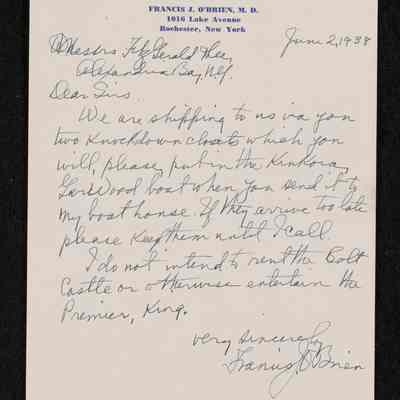 FRANCIS J. O'BRIEN, M. D.
1016 Lake Avenue
Rochester, New York
June 2, 1938
Messrs Fitz Gerald & Lee,
Alexandria Bay, N.Y.
Dear Sirs
We are shipping to us via you
two Knockdown closets which you
will, please put in the Kinkora,
Garwood boat when you send it to
my boat house. If they arrive too late
please keep them until I call.
I do not intend to rent the Bolt
Castle or otherwise entertain the
Premier, King.
very sincerely
Francis J O'Brien